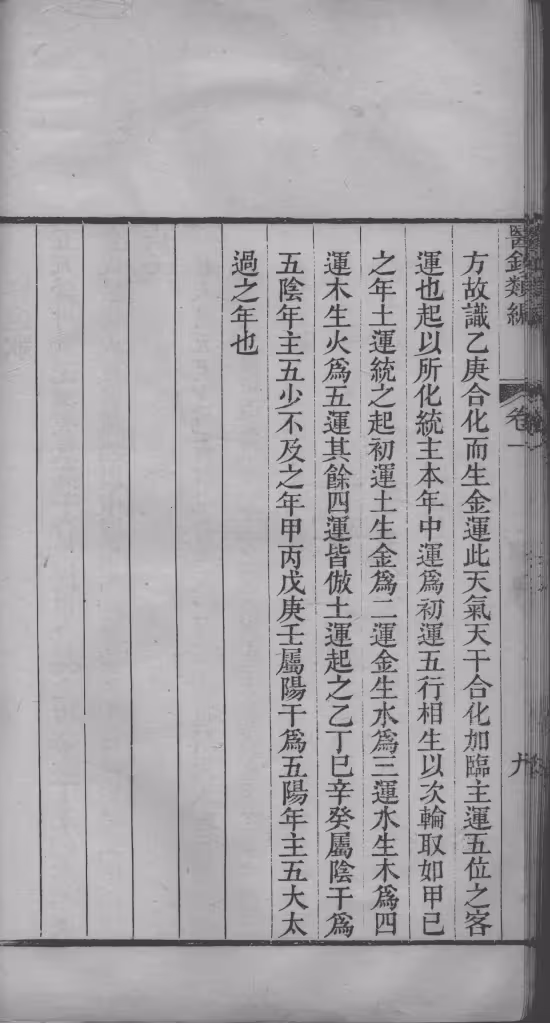 醫鈔類編
卷一
九
方故識乙庚合化而生金運此天氣天干合化加臨主運五位之客
運也起以所化統主本年中運爲初運五行相生以次輪取如甲已
之年土運統之起初運土生金爲二運金生水爲三運水生木爲四
運木生火爲五運其餘四運皆倣土運起之乙丁巳辛癸屬陰干爲
五陰年主五少不及之年甲丙戊庚壬屬陽干爲五陽年主五大太
過之年也